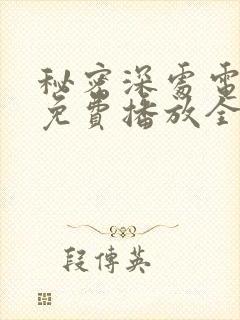 秘密深處電
免費播放全
段傳英